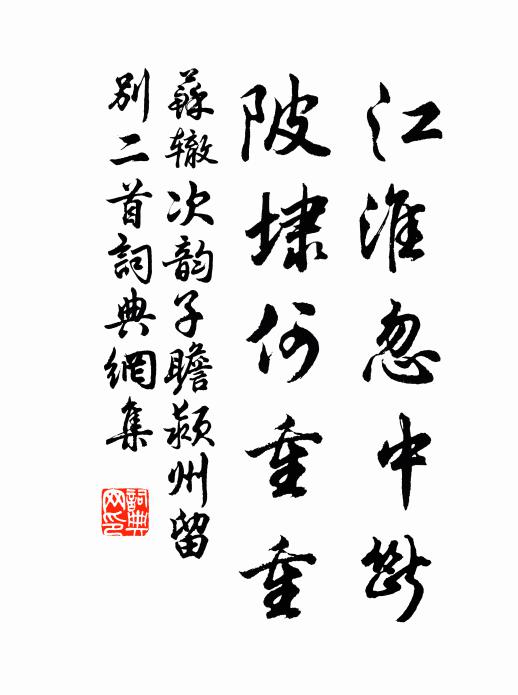 江淮忽中斷
陂埭何重重
蘇辙次韵子瞻颍州留
別二首詞典網集
詞典网印